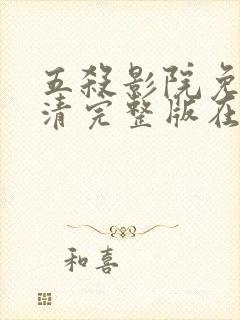 五殺影院免
清完整版在
和喜